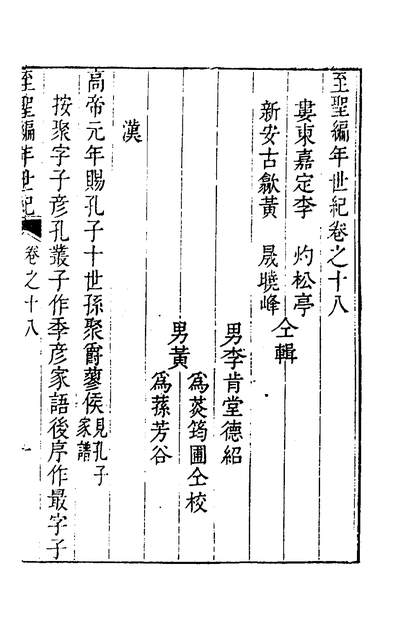 至聖編年世紀卷之十八
婁東嘉定李　灼松亭
新安古歙黃　晟曉峰　仝輯
男李肯堂德紹
男黃　為荻筠圃仝校
為蓀芳谷
漢
高帝元年賜孔子十世孫聚爵蓼侯見孔子家譜
按聚字子彥孔叢子作季彥家語後序作最字子
至聖編年世紀　卷之十八　一